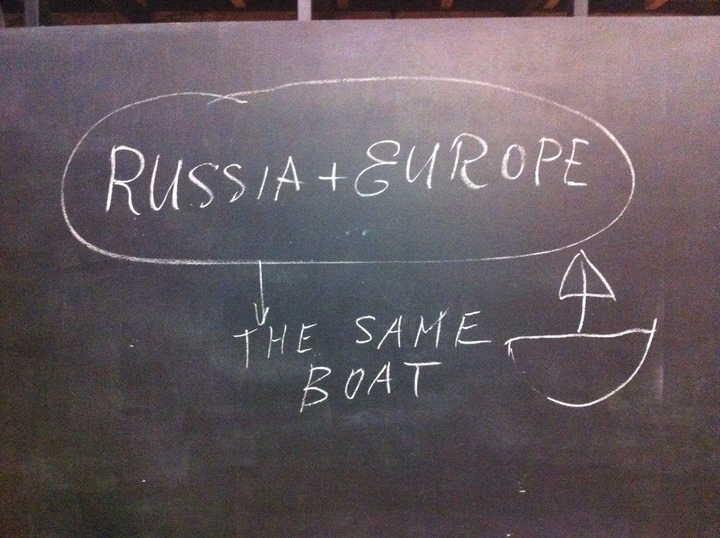 RUSSIA + EUROPE
THE SAME
BOAT